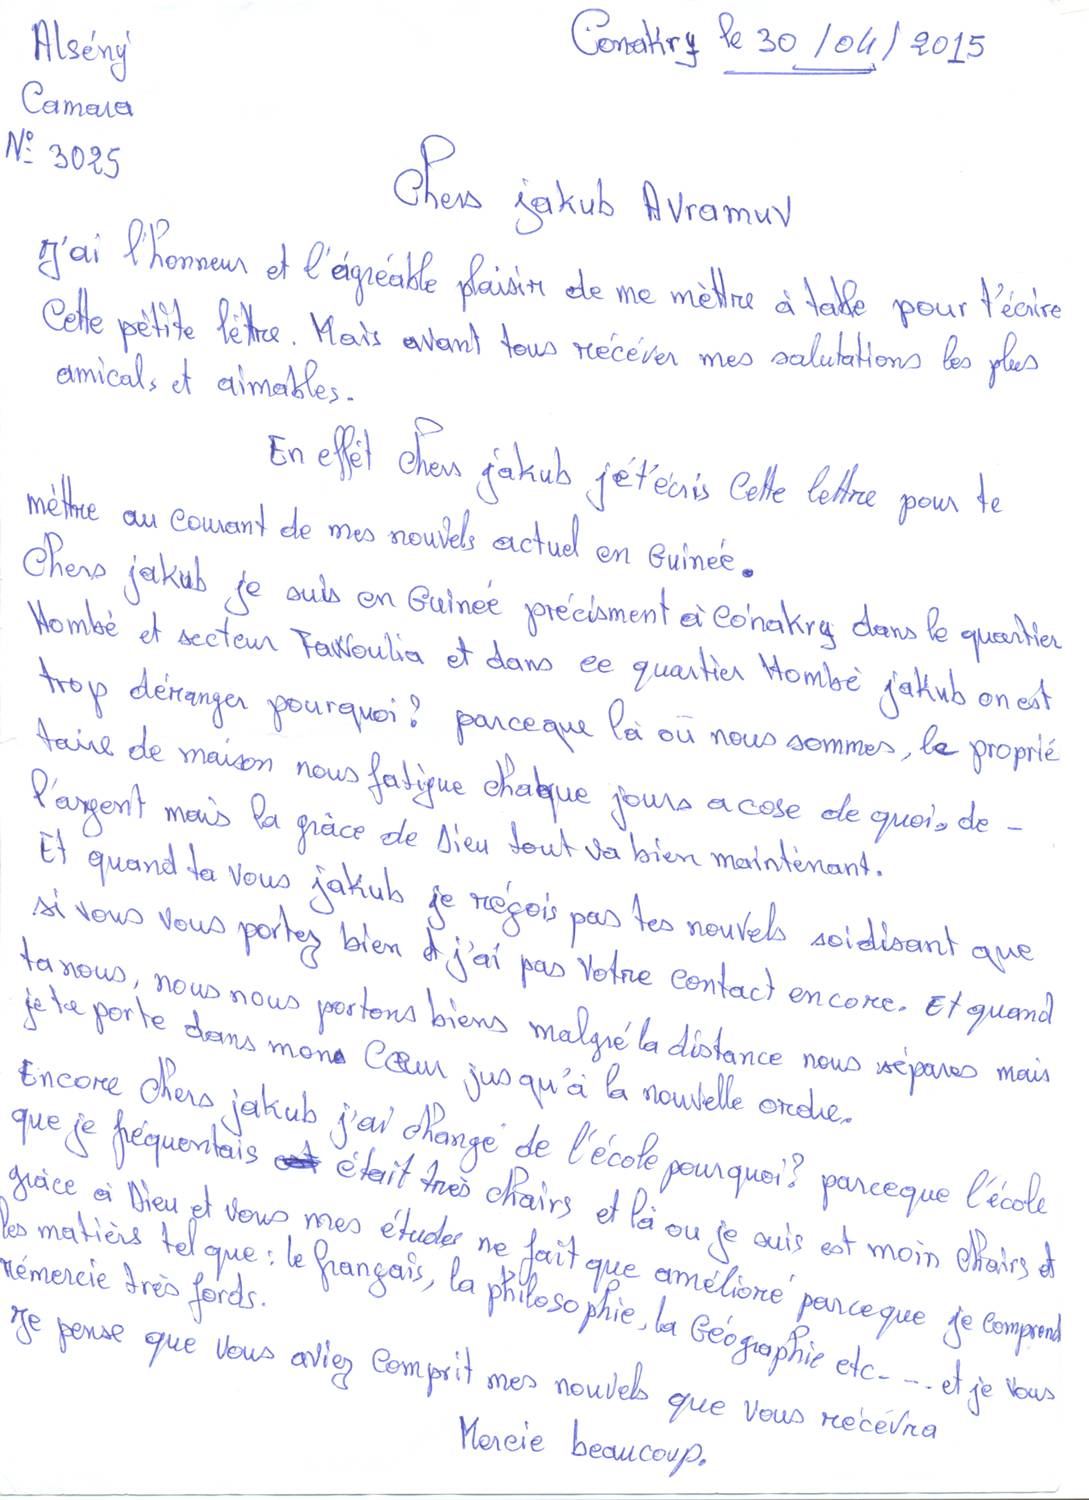 Alsény
Camara
N° 3025
Conakry le 30/04/2015
Chers jakub Avramuv
J'ai l'honneur et l'égréable plaisir de me mèttre à table pour t'écrire
Cette pètite lèttre. Mais avant tous récéver mes salutations les plus
amicals et aimables.
En effèt Chers jakub jét'écris Cette lettre pour te
mèttre au courant de mes nouvels actuel en Guinée.
Chers jakub je suis en Guinée précisment à Conakry dans le quartier
Hombé et secteur et dans ce quartier Hombé jakub on est
trop déranger pourquoi? parceque là où nous sommes, le proprié
taire de maison nous fatigue chaque jours a cose de quoi, de -
l'argent mais la gràce de Dieu tout va bien maintènant.
Et quand ta vous jakub je régois pas tes nouvels soidisant que
si vous vous portez bien et j'ai pas votre contact encore. Et quand
ta nous, nous nous portons biens malgré la distance nous sépares mais
je te porte dans mon Cœur jusqu'à la nouvelle ordre.
Encore Chers jakub j'ai changé de l'école pourquoi? parceque l'école
que je fréquentais était très chairs et là ou je suis est moin chairs et
gràce à Dieu et vous mes études ne fait que amélioré parceque je comprend
les matièrs tel que : le français, la philosophie, la Géographie etc - - . et je vous
rémercie très fords.
Je pense que vous aviez comprit mes nouvels que vous récévra
Mercie beaucoup.